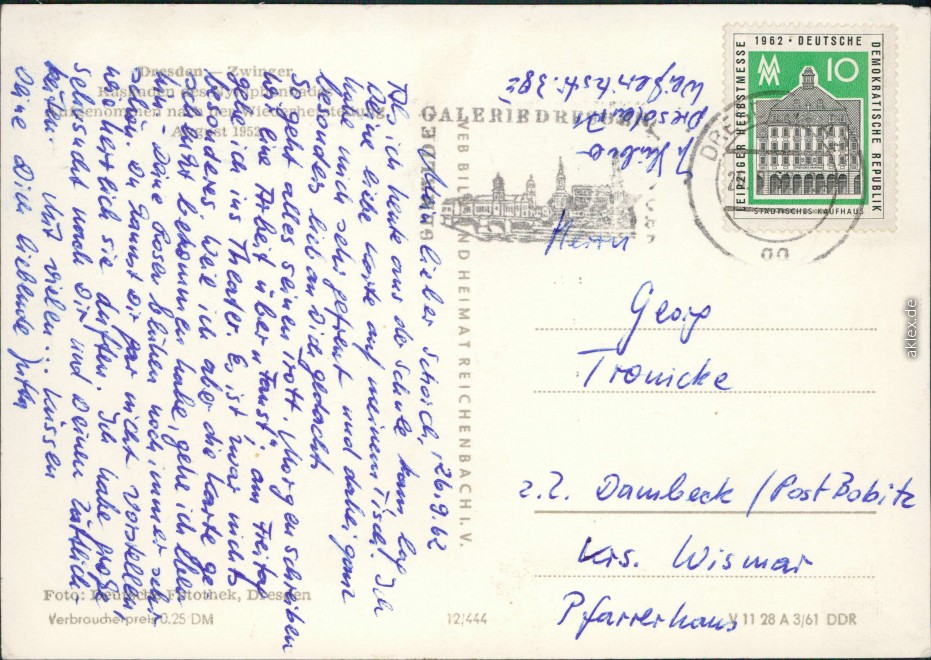 Dresden — Zwinger
Kaskaden des Nymphenbades
Aufgenommen nach der Wiederherstellung
August 1952
Mein lieber Schorch, 26.9.62
Als ich heute aus der Schule kam lag
Deine liebe Karte auf meinem Tisch. Ich
hab mich sehr gefreut und dabei ganz
besonders lieb an Dich gedacht.
Sonst geht alles seinen Trott. Morgen schreiben
wir eine Arbeit über "Faust", am Freitag
gehe ich ins Theater. Es ist zwar nichts
besonderes, wie ich aber die Karte ge-
schenkt bekommen habe, gehe ich eben
hin. Deine Rosen blühen noch immer sehr
schön. Du kannst Dir gar nicht vorstellen,
wie herrlich sie duften. Ich habe große
Sehnsucht nach Dir und Deinen zärtlich-
keiten. Mit vielen ... Küssen
Deine Dich liebende Jutta
Foto: Deutsche Fotothek, Dresden
Verbraucherpreis 0.25 DM
12/444
VEB BILD UND HEIMAT REICHENBACH I. V.
GALERIE DRESDEN
J. Kubie
Dresden A
Weißeritzstr. 38
DRESDEN
LEIPZIGER HERBSTMESSE
1962 · DEUTSCHE
DEMOKRATISCHE REPUBLIK
MM
10
STÄDTISCHES KAUFHAUS
Herrn
Georg
Tronicke
z.Z. Dambeck / Post Bobitz
Krs. Wismar
Pfarrerhaus
V 11 28 A 3/61 DDR
aklex.de